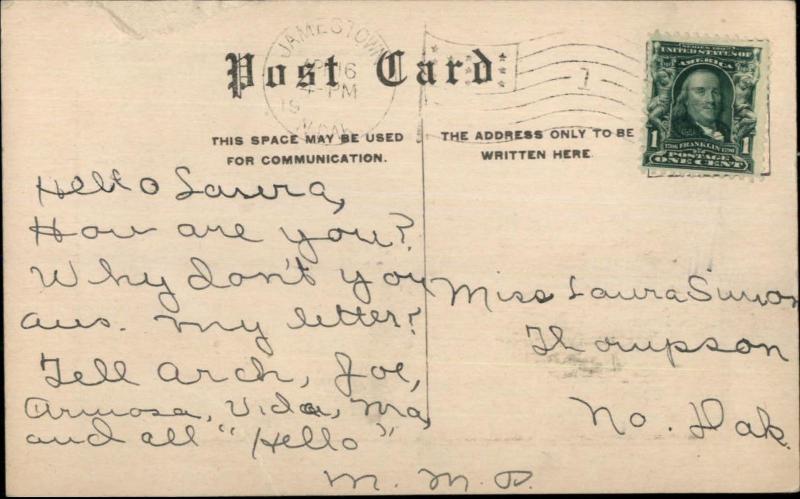 Post Card
JAMESTOWN
AP 16
-PM
1
THIS SPACE MAY BE USED
FOR COMMUNICATION.
THE ADDRESS ONLY TO BE
WRITTEN HERE
SERIES 1902
UNITED STATES OF
AMERICA
1706 FRANKLIN 1790
POSTAGE
1 ONE CENT 1
Hello Laura,
How are you?
Why don't you
ans. my letter?
Tell Arch, Joe,
Armosa, Vida, Ura,
and all "Hello"
M. M. P.
Miss Laura Simon
Thompson
No. Dak.